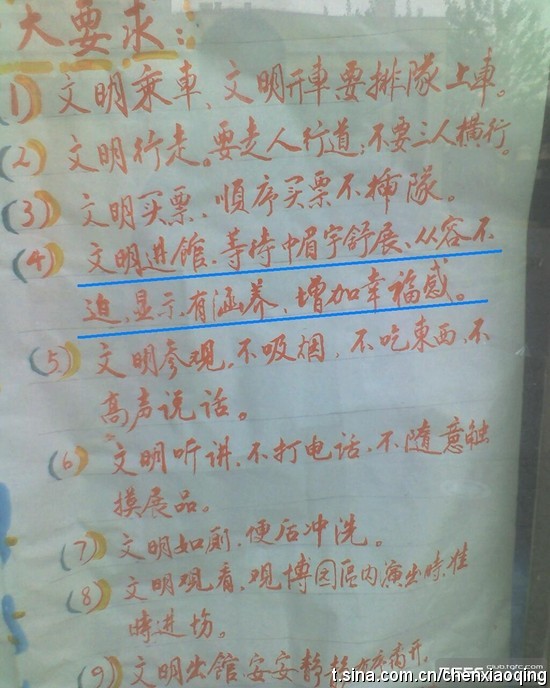 大要求:
(1) 文明乘車、文明开車要排隊上車。
(2) 文明行走。要走人行道;不要三人横行。
(3) 文明买票、順序买票不插隊。
(4) 文明进館、等待中眉宇舒展、从容不
迫,显示有涵养,增加幸福感。
(5) 文明参观,不吸烟,不吃東西,不
高声说话。
(6) 文明听讲,不打电话,不随意触
摸展品。
(7) 文明如厕,便后冲洗。
(8) 文明观看,观博园區内演出時准
時进场。
(9) 文明出館,安安静静离开。
club.tgfc.com
t.sina.com.cn/chenxiaoqing